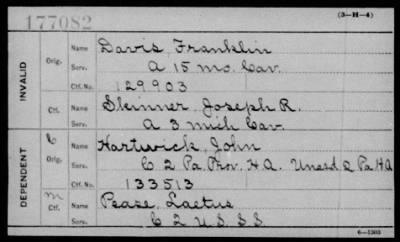 177082
(3-H-4)
INVALID
Orig.
Name Davis, Franklin
Serv. A 15 Mo. Cav.
Ctf. No. 129903
Ctf.
Name Skinner, Joseph R.
Serv. A 3 Mich Cav.
DEPENDENT
C
Orig.
Name Hartwick, John
Serv. C 2 Pa. Prov. H.A. Unasd 2 Pa HA
Ctf. No. 133513
m
Ctf.
Name Pease, Laetus
Serv. C 2 U.S.S.S.
6-1303